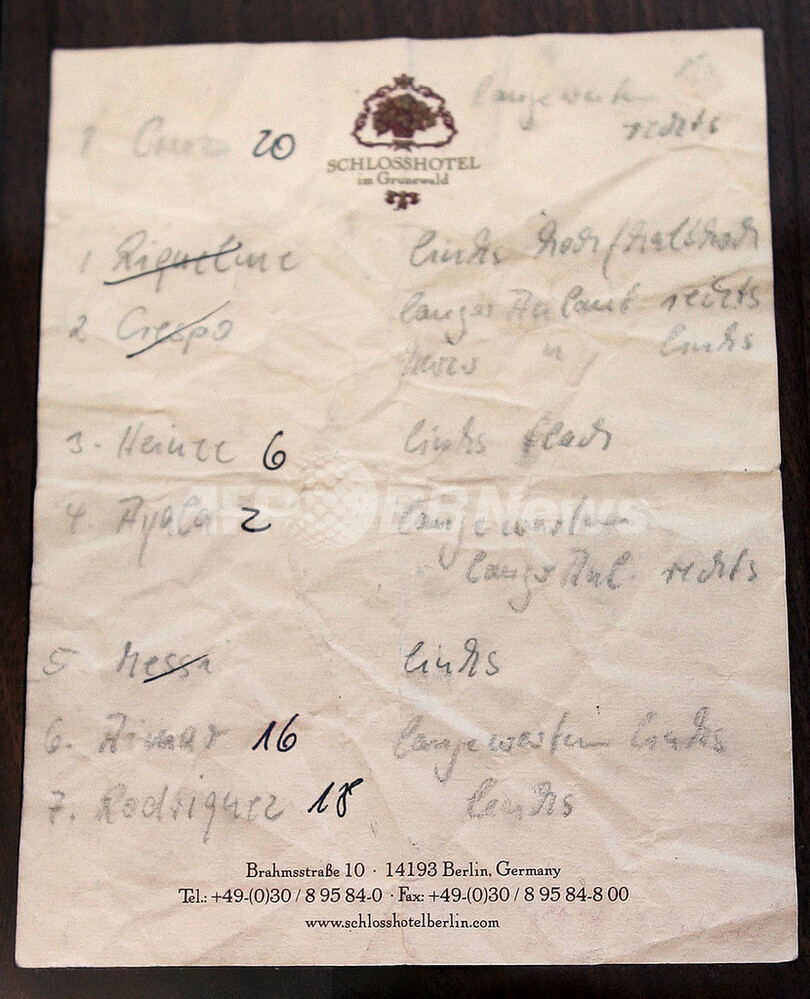 lange warten
rechts
1 Cruz 20
SCHLOSSHOTEL
im Grunewald
1 Riquelme links hoch/halbhoch
2 Crespo langer Anlauf rechts
" links
3. Heinze 6 links flach
4. Ayala 2 lange warten
lange Anl. rechts
5 Messi links
6. Aimar 16 lange warten links
7. Rodriguez 18 links
AFPBBNews
Brahmsstraße 10 · 14193 Berlin, Germany
Tel.: +49-(0)30 / 8 95 84-0 · Fax: +49-(0)30 / 8 95 84-8 00
www.schlosshotelberlin.com